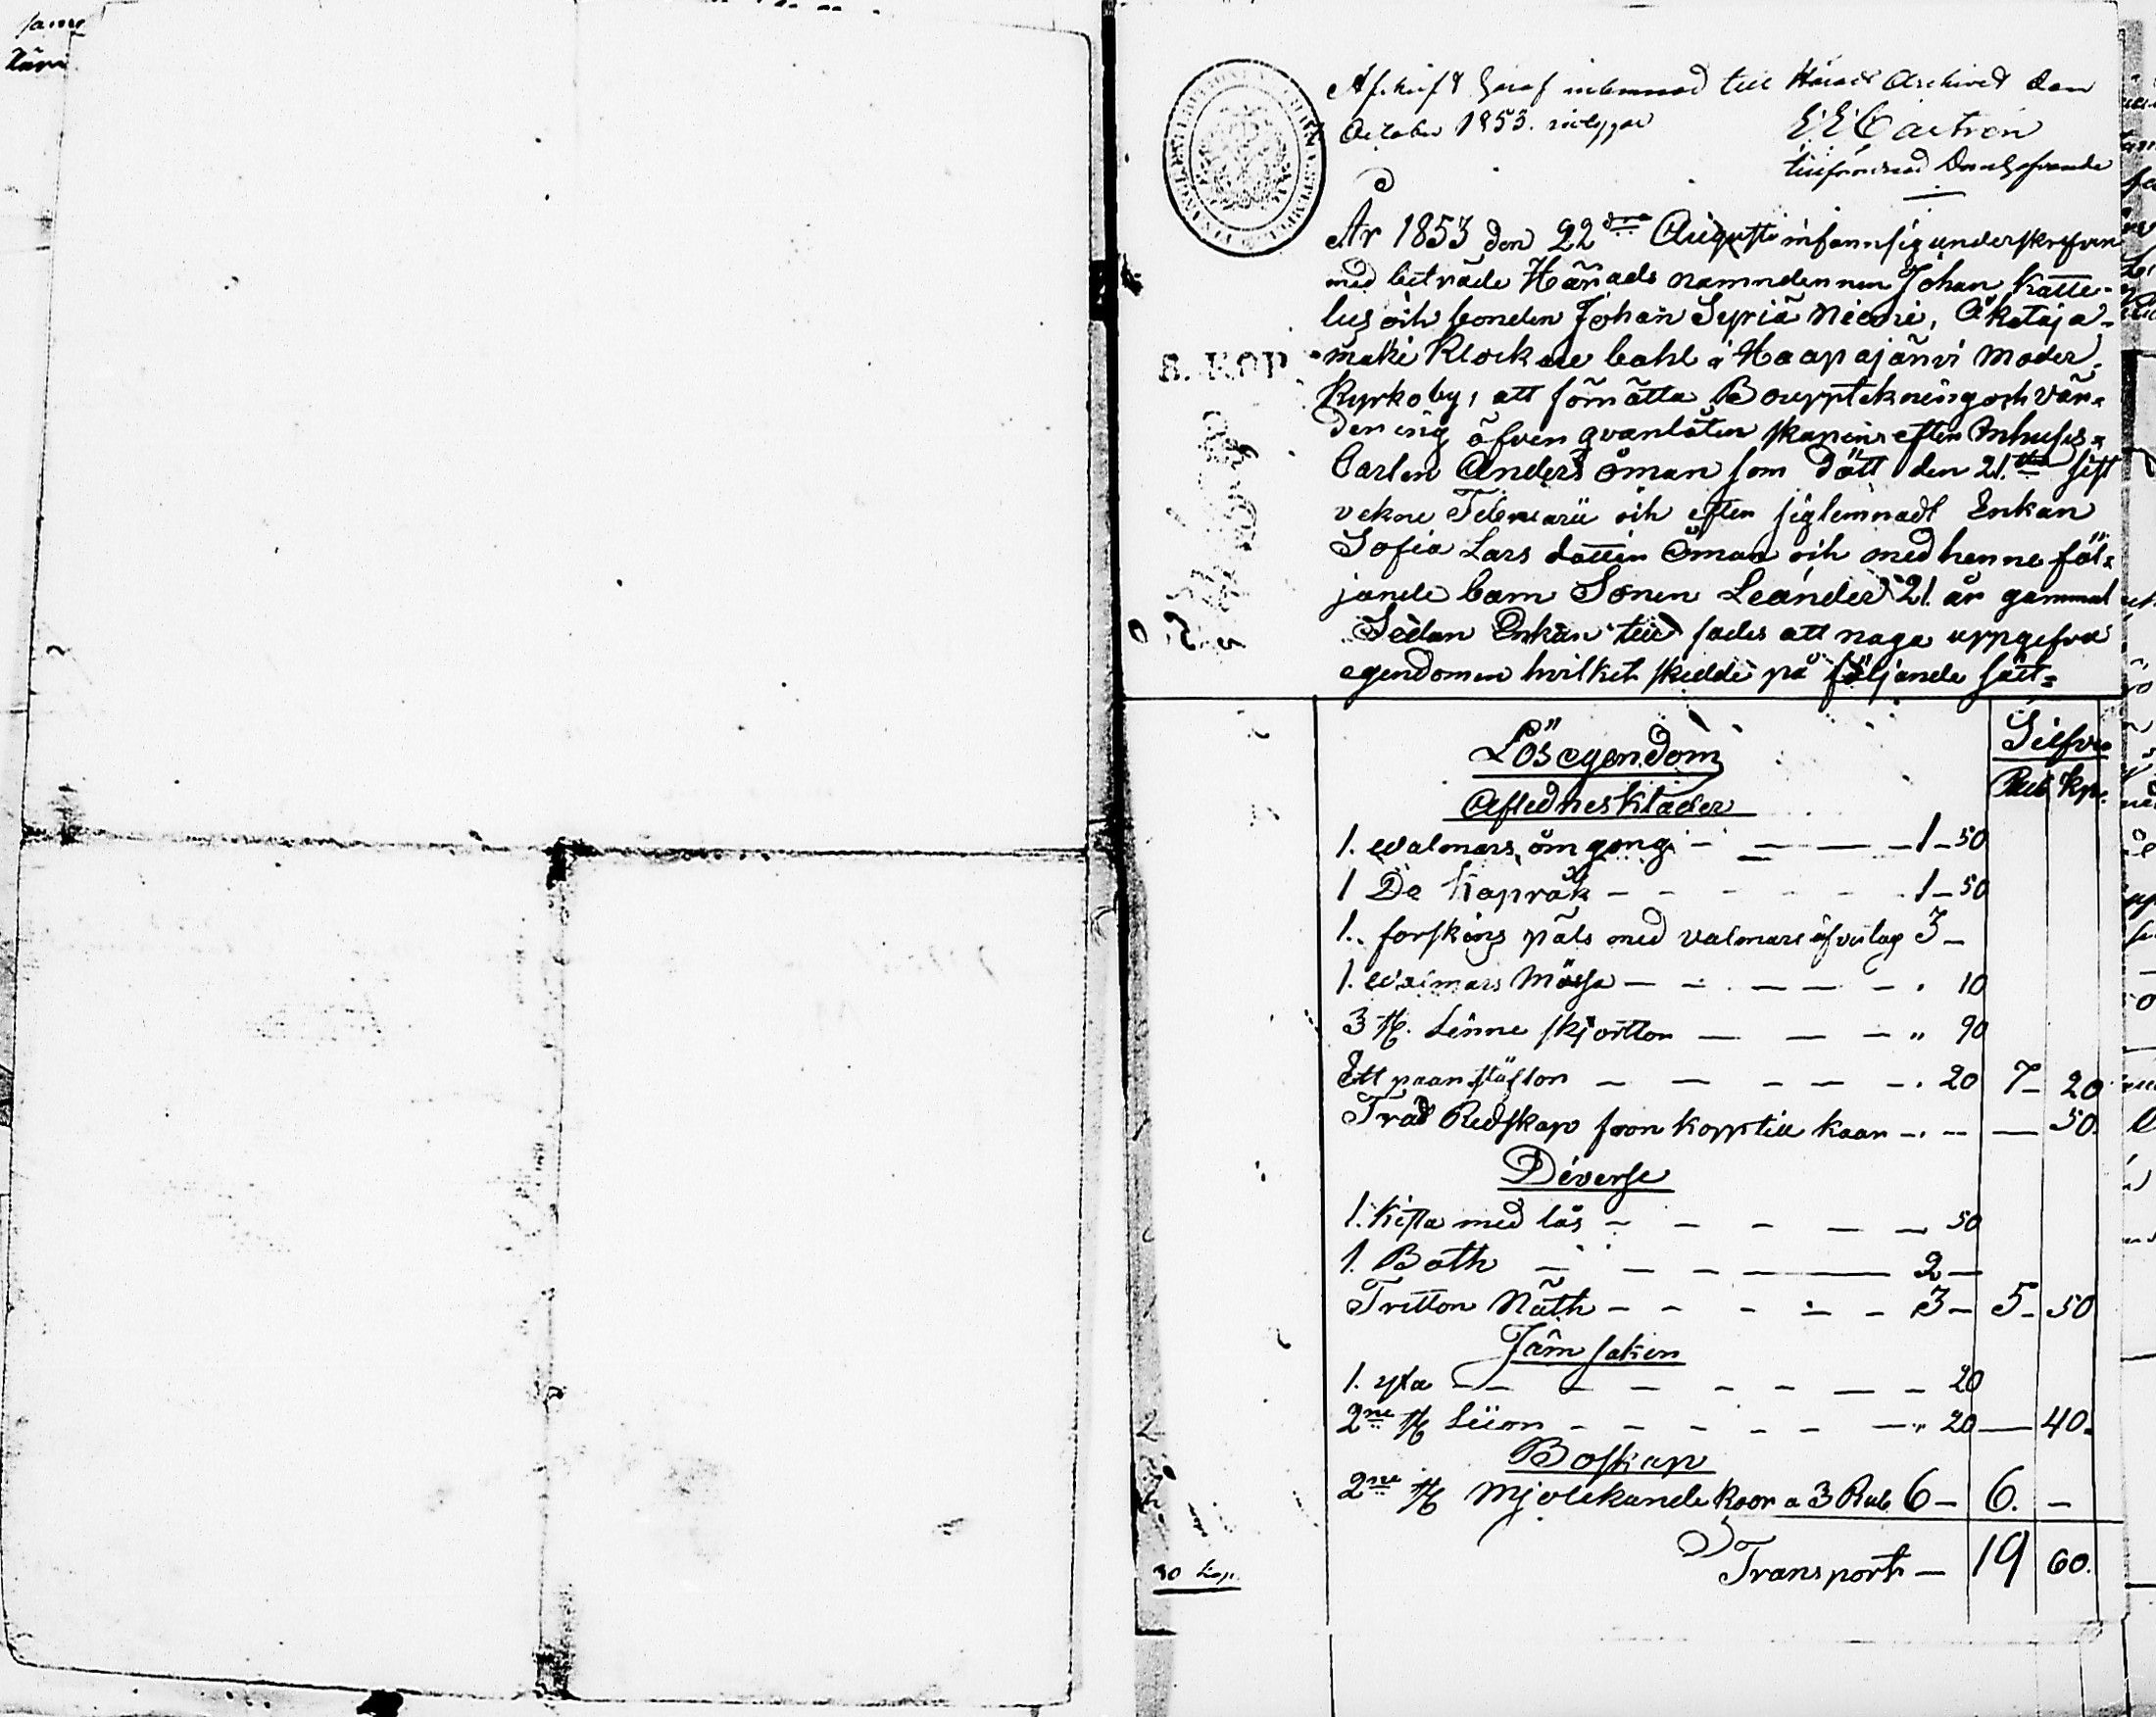 Afskrift häraf inlemnad till Härads Archivet den
October 1853. intygar
E E Castrén
tillförordnad Domhafvande
År 1853 den 22dra Augusti infann sig underskrefven
med beträde Härads namndemnen Johan Katte-
lus och bonden Johan Syriä Niemi, Åkataja-
mäki Klockare bohl i Haapajärvi Moder
Kyrkoby, att förrätta Bouppteknings och Vär-
dering öfver qvarlåtenskapen efter Inhuses-
Carlen Anders Öman som dött den 21.sta sist
vekne Februarii och efter sig lemnadt Enkan
Sofia Lars dotter Öman och med henne föl-
jande barn Sonen Leander 21. år gammal
Sedan Enkan till sades att noga uppgefva
egendomen hvilket skedde på följande sätt=
8. KOP
Lösegendom
Silfver
Rub Kp.
Aflednes Kläder
1. Walmars omgong - - - - 1-50
1 Do Kapråk - - - - - - 1-50
1. forskins päls med valmars öfverlag 3-
1. Walmars Mössa - - - - - . 10
3 st. Linne skjortor - - - " 90
Ett paar stöflor - - - - - . 20 7- 20
Träd Redskap fron kopp till kaar - - - 50.
Diverse
1. Kista med lås - - - - - 50
1. Båth - - - - - 2-
Tretton Näth - - - - - 3- 5- 50
Järn saker
1. yxa - - - - - - - - 20
2ne st Liior - - - - - - " 20 - 40-
Boskap
2ne st Mjolckande koor a 3 Rub 6- 6. -
Transport - 19 60.
30 kop.